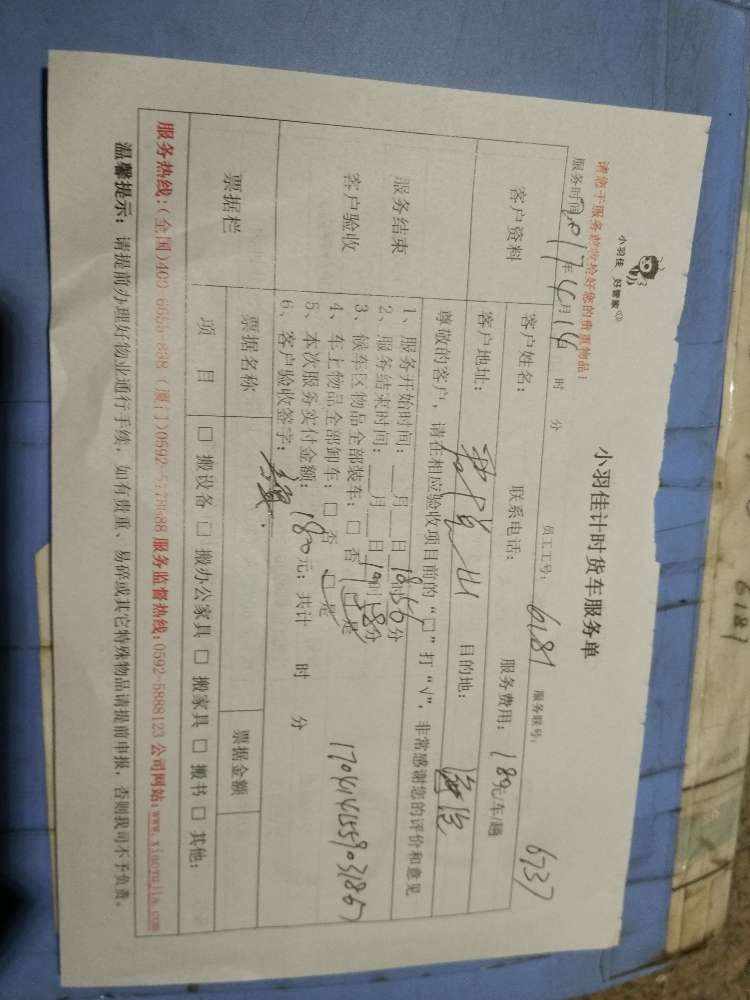 小羽佳 好管家
请您于服务前收拾好您的贵重物品!
小羽佳计时货车服务单
服务时间:2017年4月14 时 分 员工工号: 6181 服务联号: 6737
客户资料
客户姓名: 联系电话: 服务费用: 180元/车/趟
客户地址: 目的地: 海沧
服务结束
客户验收
尊敬的客户,请在相应验收项目前的“口”打“√”,非常感谢您的评价和意见
1、服务开始时间: 月 日18时56分
2、服务结束时间: 月 日19时18分
3、候车区物品全部装车:□ 否 □ 是
4、车上物品全部卸车:□ 否 □ 是
5、本次服务实付金额: 180元;共计 时 分
6、客户验收签字:
票据栏
票据名称 票据金额
项 目 □ 搬设备 □ 搬办公家具 □ 搬家具 □ 搬书 □ 其他:
服务热线:(全国)400 (厦门)0592- 服务监督热线:0592-5888123 公司网站:www.xiaoyujia.com
温馨提示:请提前办理好物业通行手续,如有贵重、易碎或其它特殊物品请提前申报,否则我司不予负责。
6181